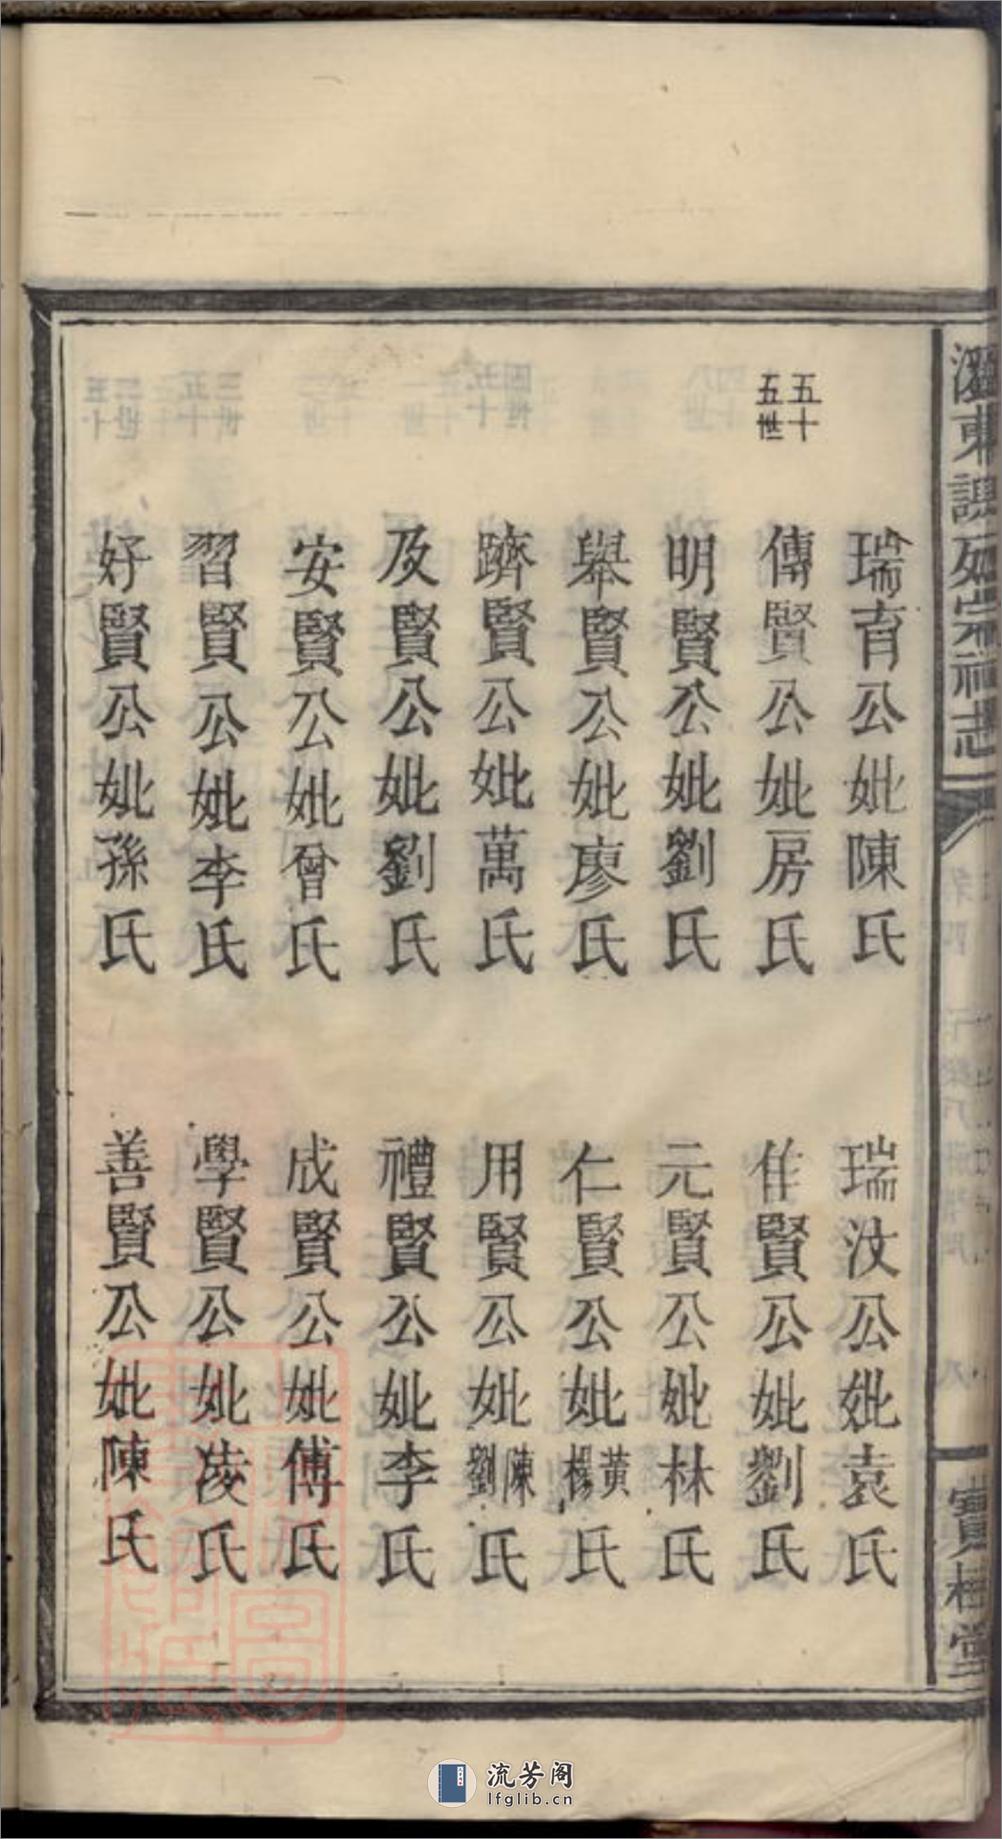 瑞育公妣陳氏
瑞汶公妣袁氏
五十五世
傳賢公妣房氏
佳賢公妣劉氏
明賢公妣劉氏
元賢公妣林氏
舉賢公妣廖氏
仁賢公妣黃楊氏
躋賢公妣萬氏
用賢公妣陳劉氏
及賢公妣劉氏
禮賢公妣李氏
安賢公妣曾氏
成賢公妣傅氏
習賢公妣李氏
學賢公妣凌氏
好賢公妣孫氏
善賢公妣陳氏
寶桂堂
流芳阁
lfglib.cn